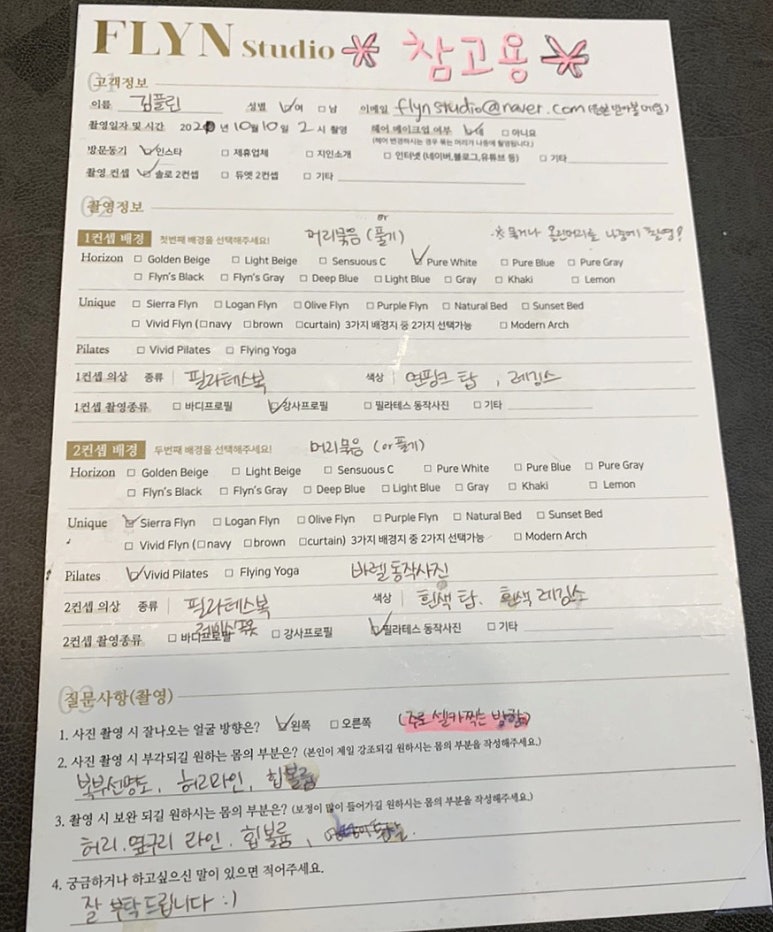 FLYN Studio * 참고용 *
01 고객정보
이름 김플린 성별 ☑여 ☐남 이메일 flynstudio@naver.com
촬영일자 및 시간 202 년 10월 10일 2시 촬영 헤어 메이크업 여부 ☑네 ☐아니요
(헤어 변경하시는 경우 묶는 머리가 나중에 촬영됩니다.)
방문동기 ☑인스타 ☐제휴업체 ☐지인소개 ☐인터넷 (네이버,블로그,유튜브 등) ☐기타
촬영 컨셉 ☑솔로 2컨셉 ☐듀엣 2컨셉 ☐기타
02 촬영정보
1컨셉 배경 첫번째 배경을 선택해주세요! 머리묶음 or (풀기) ※ 묶거나 올린머리를 나중에 촬영!
Horizon ☐Golden Beige ☐Light Beige ☐Sensuous C ☑Pure White ☐Pure Blue ☐Pure Gray
☐Flyn's Black ☐Flyn's Gray ☐Deep Blue ☐Light Blue ☐Gray ☐Khaki ☐Lemon
Unique ☐Sierra Flyn ☐Logan Flyn ☐Olive Flyn ☐Purple Flyn ☐Natural Bed ☐Sunset Bed
☐Vivid Flyn (☐navy ☐brown ☐curtain) 3가지 배경지 중 2가지 선택가능 ☐Modern Arch
Pilates ☐Vivid Pilates ☐Flying Yoga
1컨셉 의상 종류 | 필라테스복 색상 | 연핑크 탑, 레깅스
1컨셉 촬영종류 ☐바디프로필 ☑강사프로필 ☐필라테스 동작사진 ☐기타
2컨셉 배경 두번째 배경을 선택해주세요! 머리묶음 (or풀기)
Horizon ☐Golden Beige ☐Light Beige ☐Sensuous C ☐Pure White ☐Pure Blue ☐Pure Gray
☐Flyn's Black ☐Flyn's Gray ☐Deep Blue ☐Light Blue ☐Gray ☐Khaki ☐Lemon
Unique ☑Sierra Flyn ☐Logan Flyn ☐Olive Flyn ☐Purple Flyn ☐Natural Bed ☐Sunset Bed
☐Vivid Flyn (☐navy ☐brown ☐curtain) 3가지 배경지 중 2가지 선택가능 ☐Modern Arch
Pilates ☑Vivid Pilates ☐Flying Yoga 바렐동작사진
2컨셉 의상 종류 | 필라테스복 색상 | 흰색 탑. 흰색 레깅스
2컨셉 촬영종류 ☐바디프로필 ☐강사프로필 ☑필라테스 동작사진 ☐기타
03 질문사항(촬영)
1. 사진 촬영 시 잘나오는 얼굴 방향은? ☑왼쪽 ☐오른쪽 (주로 셀카찍는 방향)
2. 사진 촬영 시 부각되길 원하는 몸의 부분은? (본인이 제일 강조되길 원하시는 몸의 부분을 작성해주세요.)
복부선명도, 허리라인, 힙볼륨
3. 촬영 시 보완 되길 원하시는 몸의 부분은? (보정이 많이 들어가길 원하시는 몸의 부분을 작성해주세요.)
허리, 옆구리 라인. 힙볼륨,
4. 궁금하거나 하고싶으신 말이 있으면 적어주세요.
잘 부탁드립니다 :)